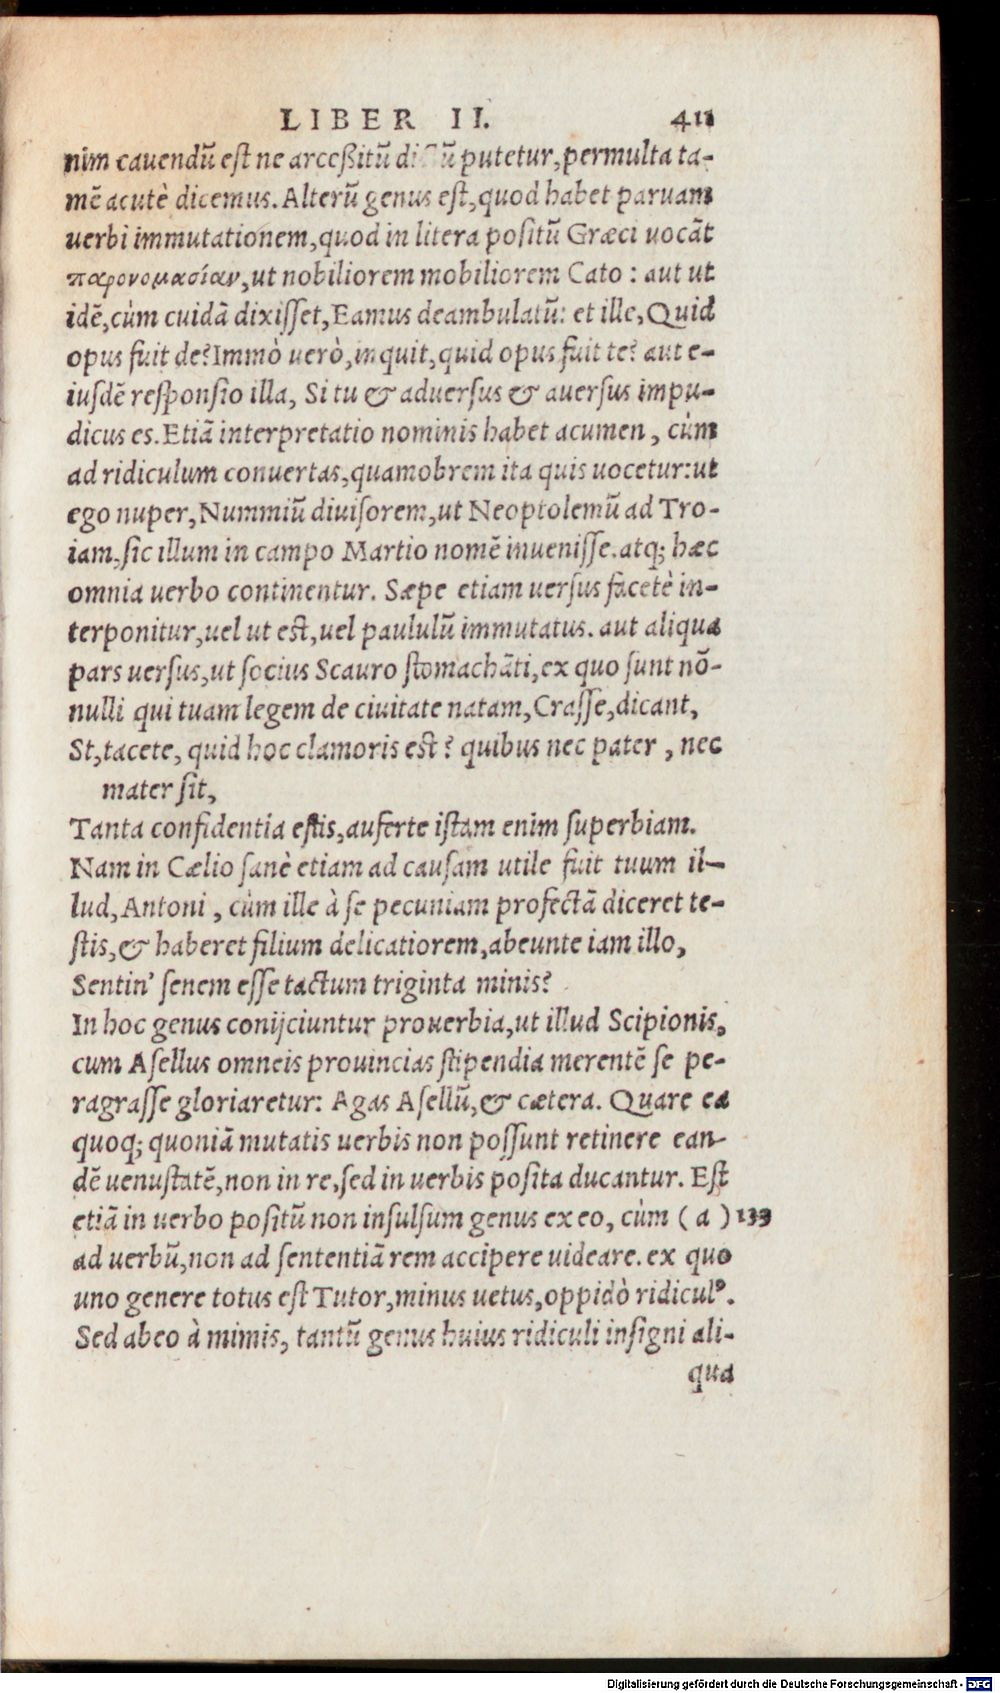 LIBER II. 411
nim cauendũ est ne arceßitũ putetur, permulta ta-
mẽ acutè dicemus. Alterũ genus est, quod habet paruam
uerbi immutationem, quod in litera positũ Græci uocãt
παρονομασίαν, ut nobiliorem mobiliorem Cato : aut ut
idẽ, cùm cuidã dixisset, Eamus deambulatũ: et ille, Quid
opus fuit de? Immò uerò, inquit, quid opus fuit te? aut e-
iusdẽ responsio illa, Si tu & aduersus & auersus impu-
dicus es. Etiã interpretatio nominis habet acumen, cùm
ad ridiculum conuertas, quamobrem ita quis uocetur: ut
ego nuper, Nummiũ diuisorem, ut Neoptolemũ ad Tro-
iam, sic illum in campo Martio nomẽ inuenisse. atq; hæc
omnia uerbo continentur. Sæpe etiam uersus facetè in-
terponitur, uel ut est, uel paululũ immutatus. aut aliqua
pars uersus, ut socius Scauro stomachãti, ex quo sunt nõ-
nulli qui tuam legem de ciuitate natam, Crasse, dicant,
St, tacete, quid hoc clamoris est? quibus nec pater, nec
mater sit,
Tanta confidentia estis, auferte istam enim superbiam.
Nam in Cælio sanè etiam ad causam utile fuit tuum il-
lud, Antoni, cùm ille à se pecuniam profectã diceret te-
stis, & haberet filium delicatiorem, abeunte iam illo,
Sentin' senem esse tactum triginta minis?
In hoc genus conijciuntur prouerbia, ut illud Scipionis,
cum Asellus omneis prouincias stipendia merentẽ se pe-
ragrasse gloriaretur: Agas Asellũ, & cætera. Quare ea
quoq; quoniã mutatis uerbis non possunt retinere ean-
dẽ uenustatẽ, non in re, sed in uerbis posita ducantur. Est
etiã in uerbo positũ non insulsum genus ex eo, cùm ( a ) 133
ad uerbũ, non ad sententiã rem accipere uideare. ex quo
uno genere totus est Tutor, minus uetus, oppidò ridiculꝰ.
Sed abeo à mimis, tantũ genus huius ridiculi insigni ali-
qua
Digitalisierung gefördert durch die Deutsche Forschungsgemeinschaft - DFG